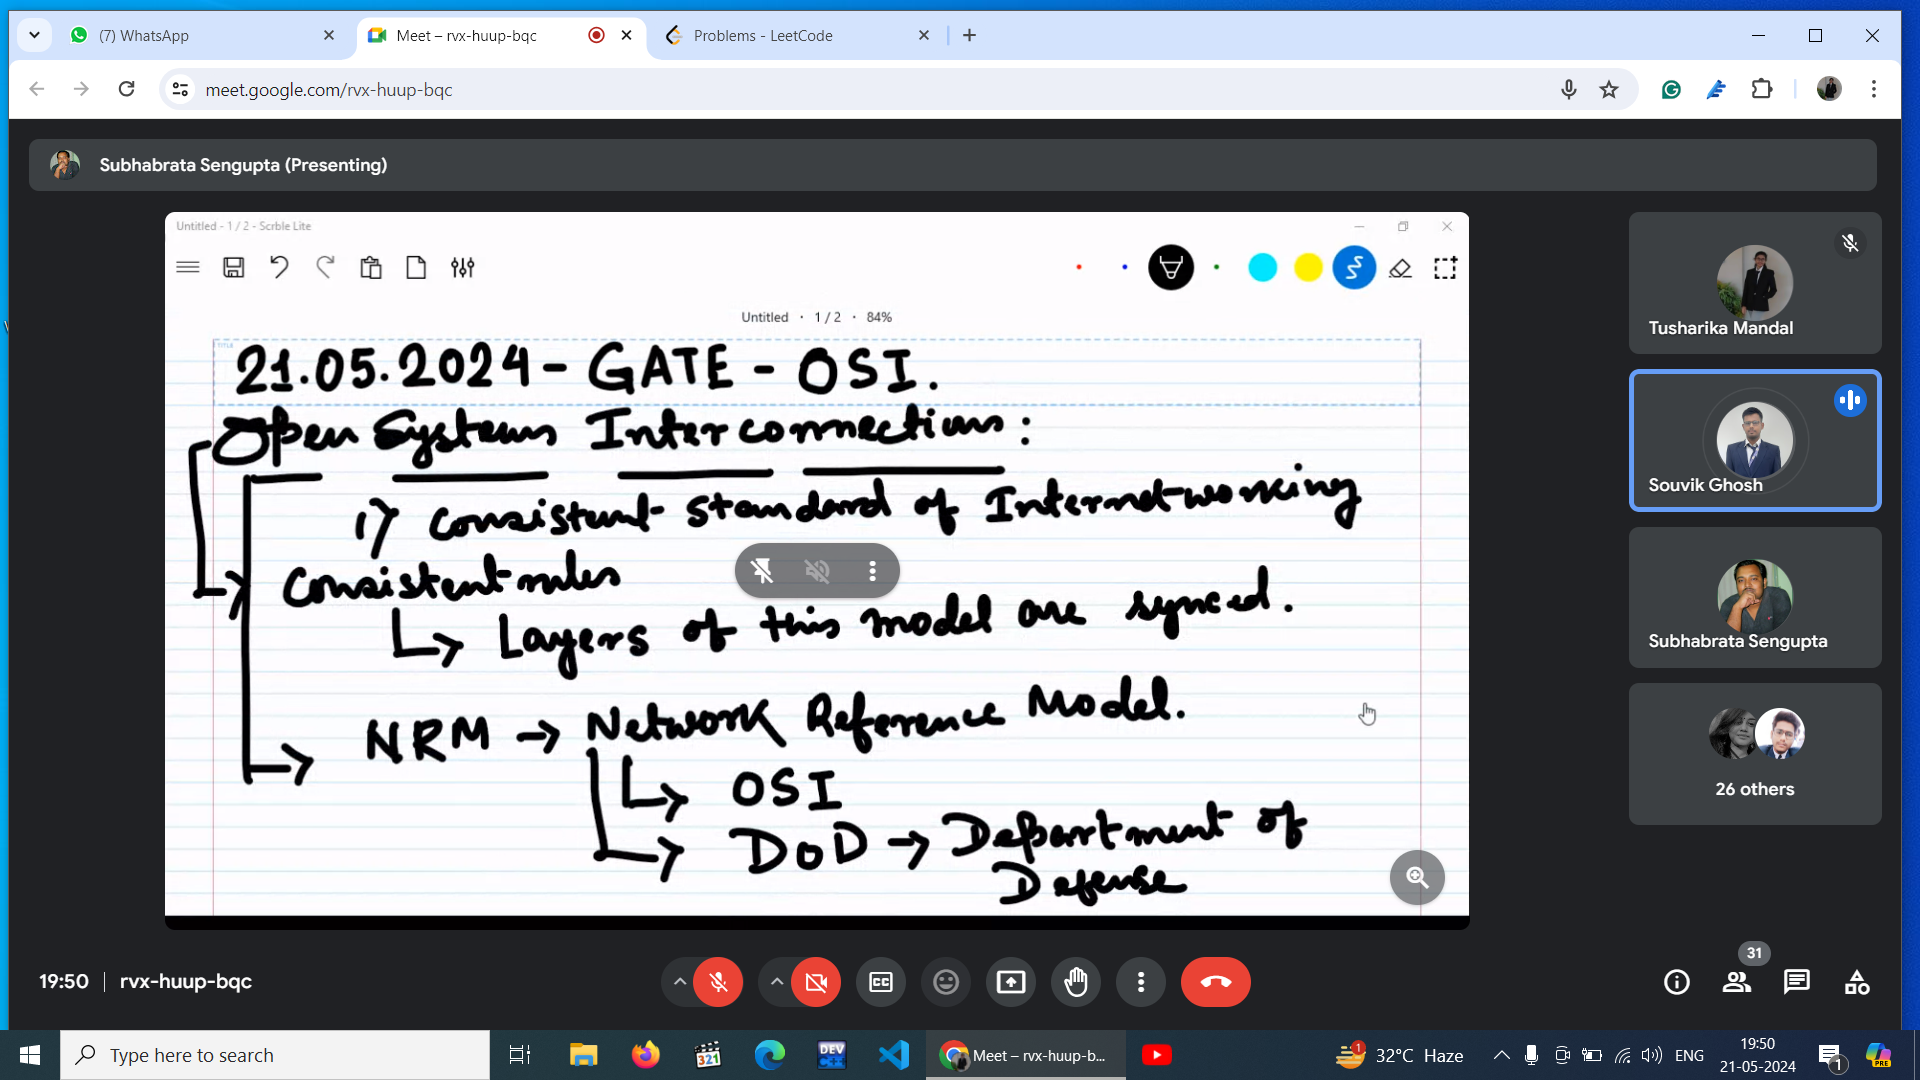 (7) WhatsApp
Meet – rvx-huup-bqc
Problems - LeetCode
meet.google.com/rvx-huup-bqc
Subhabrata Sengupta (Presenting)
Untitled - 1 / 2 - Scrble Lite
Untitled · 1 / 2 · 84%
TITLE
21.05.2024 - GATE - OSI.
Open Systems Interconnections :
1) Consistent standard of Internetworking
Consistent rules
Layers of this model are synced.
NRM → Network Reference Model.
OSI
DOD → Department of
Defense
Tusharika Mandal
Souvik Ghosh
Subhabrata Sengupta
26 others
19:50 | rvx-huup-bqc
CC
31
Type here to search
321
DEV C++
Meet – rvx-huup-b...
1
32°C Haze
ENG
19:50
21-05-2024
1
PRE